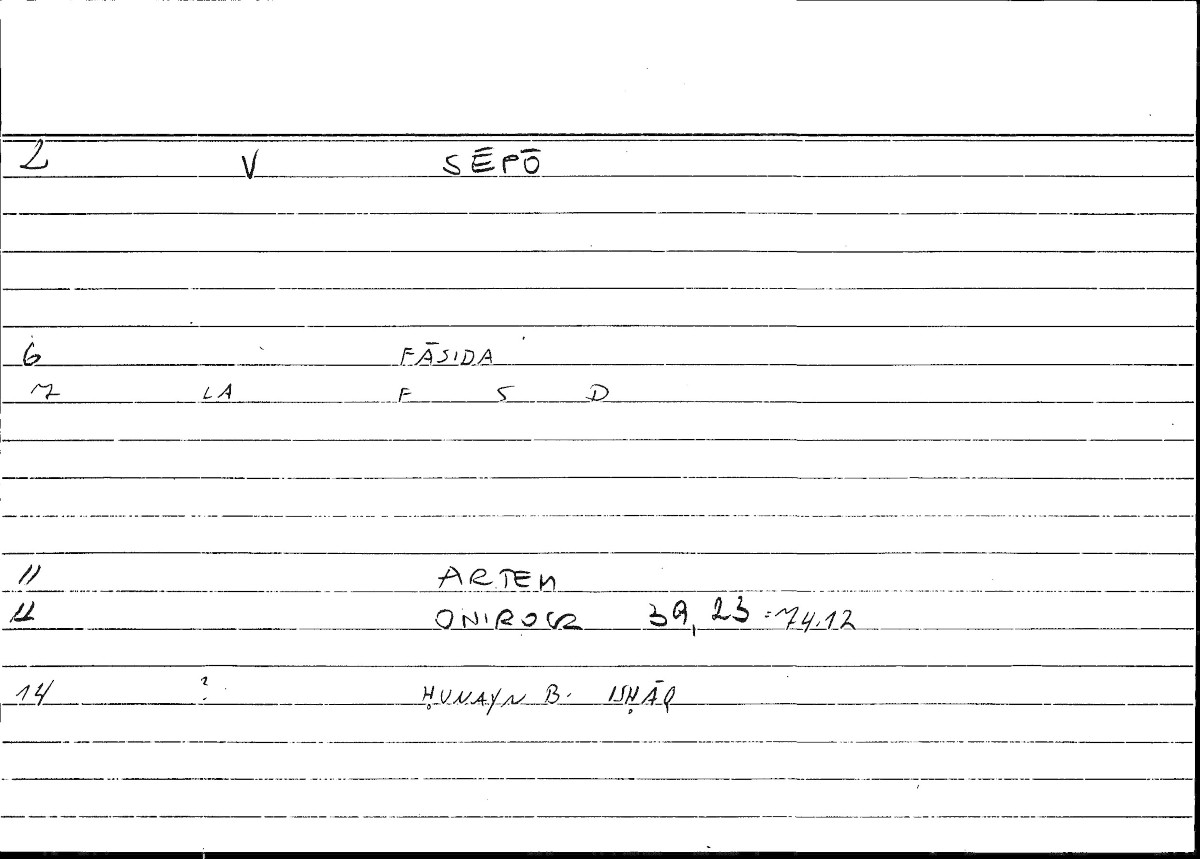 2 V SĒPŌ
6 FĀSIDA
7 LA F S D
11 ARTEM
12 ONIROCR 39, 23 = 74.12
14 ? ḤUNAYN B. ISḤĀQ